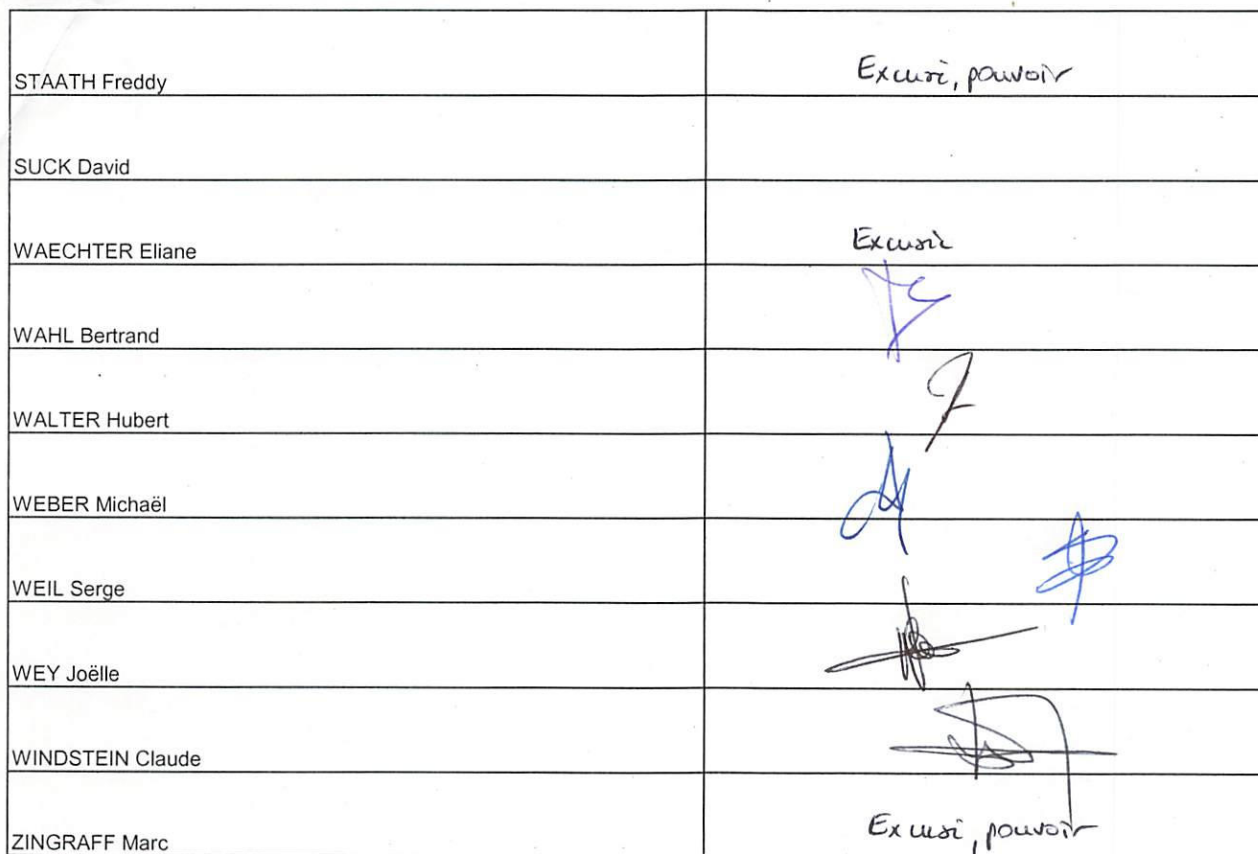 STAATH Freddy Excusé, pouvoir
SUCK David
WAECHTER Eliane Excusée
WAHL Bertrand
WALTER Hubert
WEBER Michaël
WEIL Serge
WEY Joëlle
WINDSTEIN Claude
ZINGRAFF Marc Excusé, pouvoir